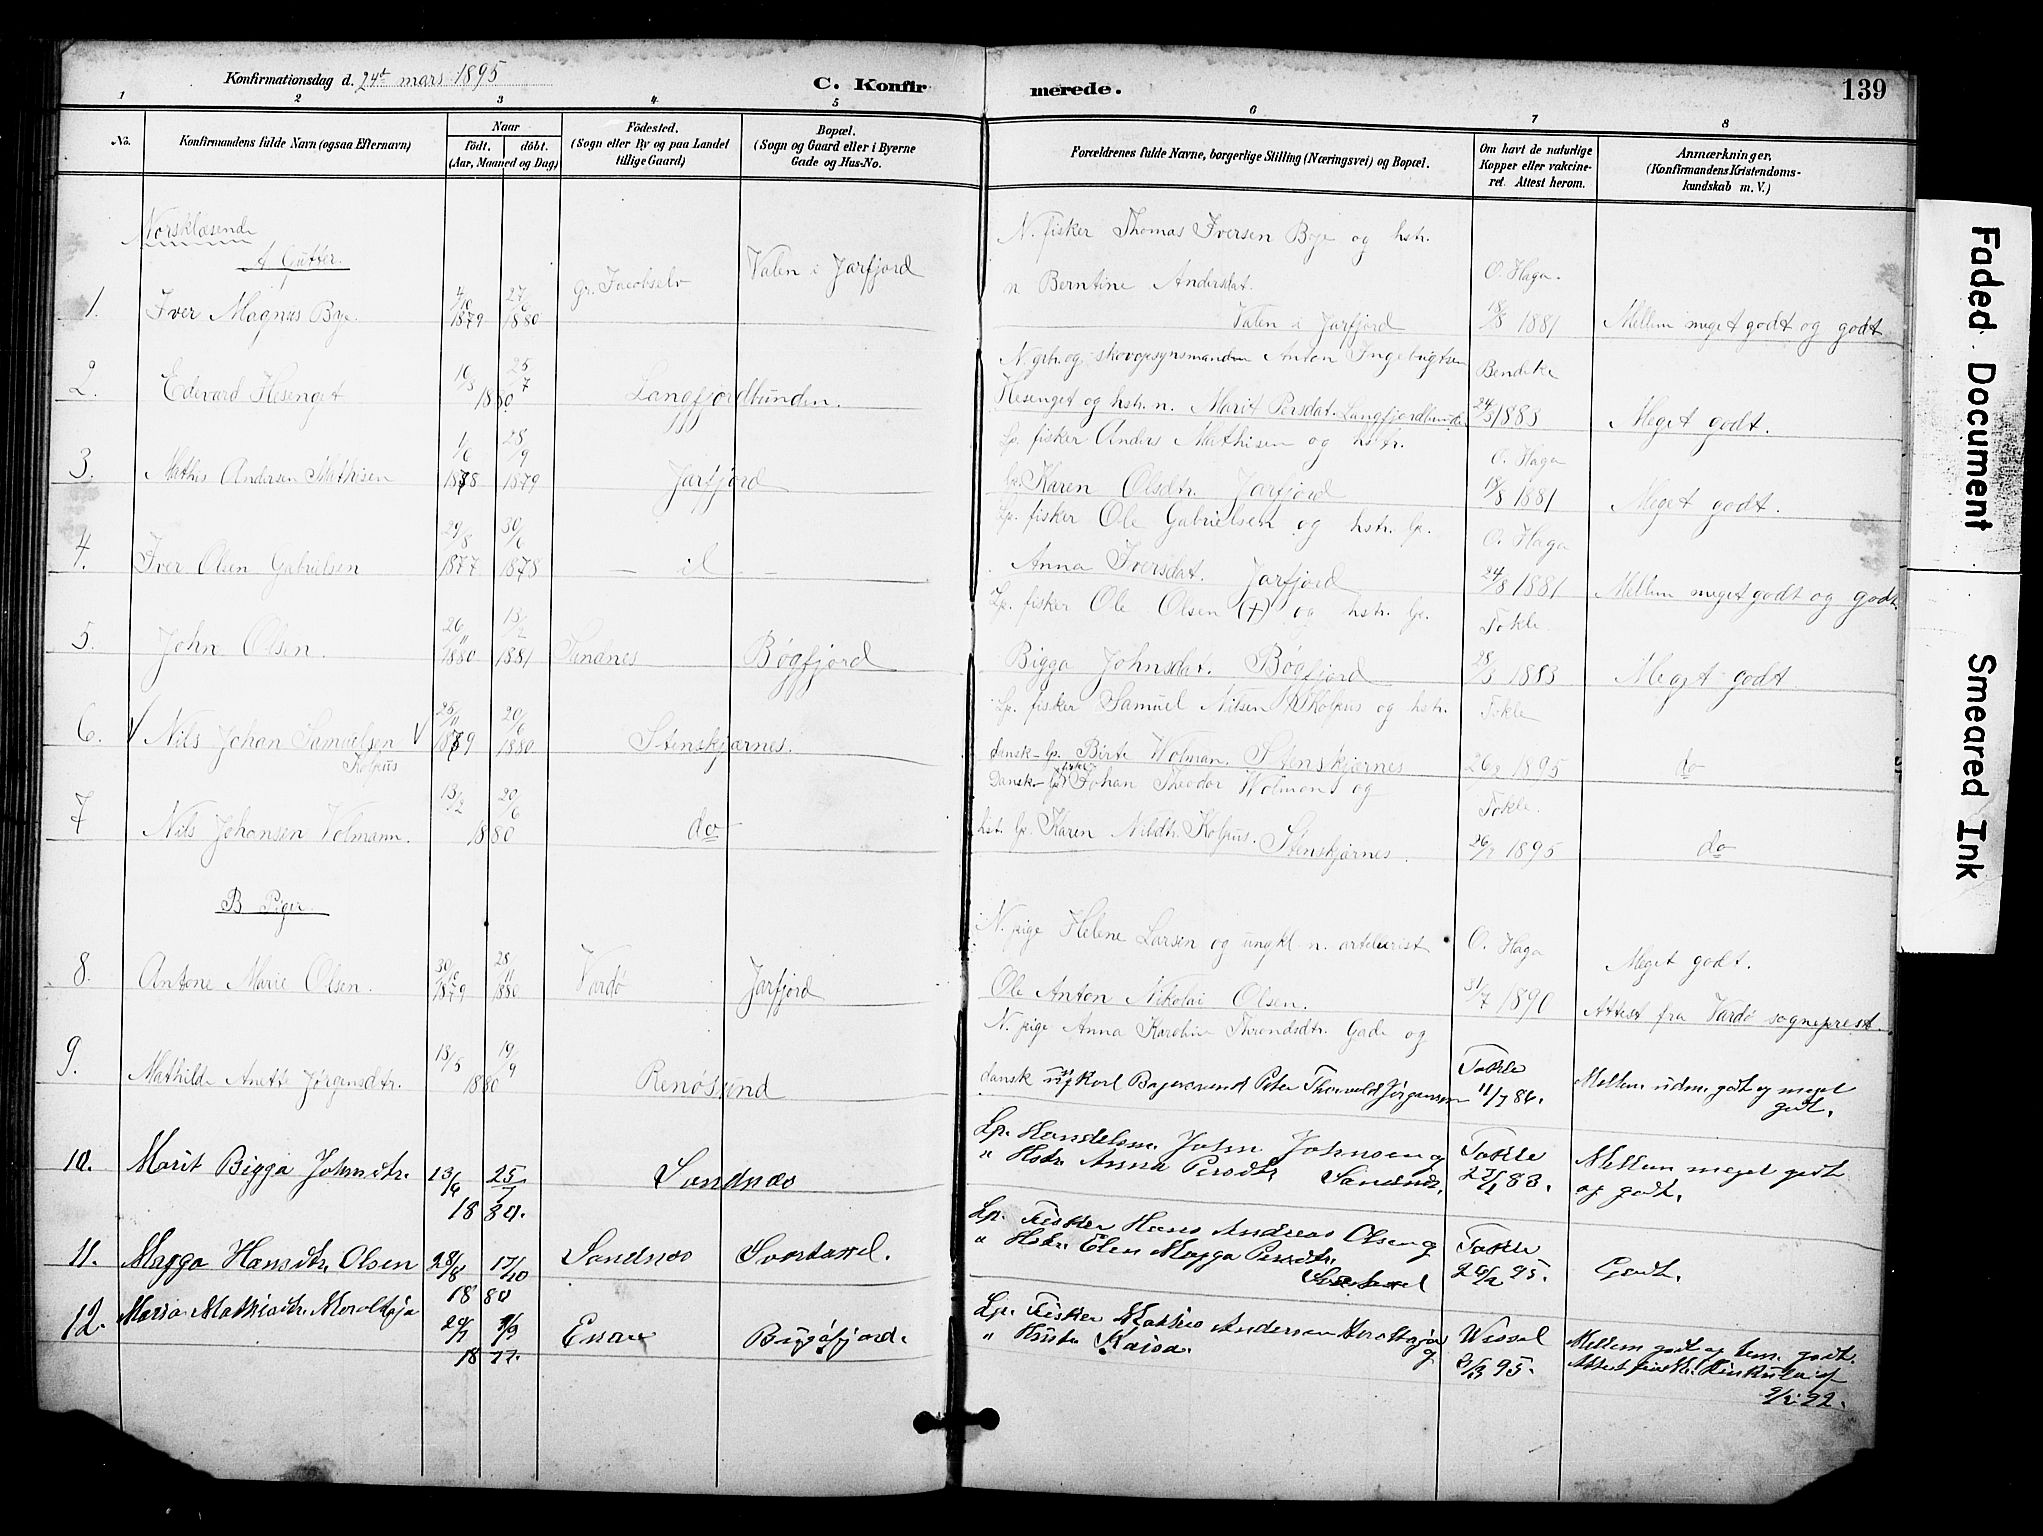 Konfirmationsdag d. 24de mars 1895
C. Konfirmerede.
139
1 2 3 4 5 6 7 8
No.
Konfirmandens fulde Navn (ogsaa Efternavn)
Naar
Födt. döbt.
(Aar, Maaned og Dag)
Födested.
(Sogn eller By og paa Landet
tillige Gaard)
Bopæl.
(Sogn og Gaard eller i Byerne
Gade og Hus-No.
Forældrenes fulde Navne, borgerlige Stilling (Næringsvei) og Bopæl.
Om havt de naturlige
Kopper eller vakcine-
ret. Attest herom.
Anmærkninger.
(Konfirmandens Kristendoms-
kundskab m. V.)
Norsklæsende
A Gutter.
1. Iver Magnus Boje. 4/10 1879 27/6 1880 gr. Jacobselv Valen i Jarfjord
N. fisker Thomas Iversen Boje og hstr.
n Berntine Andersdat.
Valen i Jarfjord
O. Haga.
18/8 1881
Mellem meget godt og godt
2. Edevard Hesenget 16/3 25/7 1880 Langfjordbunden.
N. grbr. og skovopsynsmanden Anton Ingebrigtsen
Hesenget og hstr. n. Marit Persdat. Langfjordbunden
Bendeke
24/3 1883
Meget godt.
3. Mathis Andersen Mathisen 1/6 1878 28/9 1879 Jarfjord
Lp. fisker Anders Mathisen og hstr.
lp. Karen Olsdtr. Jarfjord
O. Haga
18/8 1881
Meget godt.
4. Iver Olsen Gabrielsen 29/8 1877 30/6 1878 — id —
Lp. fisker Ole Gabrielsen og hstr. lp.
Anna Iversdat. Jarfjord
O. Haga
24/8 1881
Mellem meget godt og godt
5. John Olsen. 26/11 1880 13/2 1881 Sandnes Bøgfjord
Lp. fisker Ole Olsen (+) og hstr. lp.
Bigga Johnsdat. Bøgfjord
Tokle.
28/3 1883
Meget godt
6. V Nils Johan Samuelsen V
Kolpus
25/11 1879 20/6 1880. Stenskjærnes.
Lp. fisker Samuel Nilsen Kolpus og hstr.
dansk-lp. Birte Wolman. Stenskjærnes
Tokle
1895
do
7 Nils Johansen Volmann. 13/2 20/6 1880 do
Dansk-lp. fisker Johan Theodor Wolmann og
hstr. lp. Karen Nilsdtr. Kolpus. Stenskjærnes.
Tokle.
1895
do
B Piger.
8. Antone Marie Olsen. 30/10 1879 28/11 1880 Vardø Jarfjord
N. pige Helene Larsen og ungkl n. artellerist
Ole Anton Nikolai Olsen.
O. Haga
31/7 1890
Meget godt.
Attest fra Vardø sogneprest.
9. Mathilde Anette Jørgensdtr. 13/5 19/9 1880 Renøsund
N. pige Anna Karoline Throndsdtr. Gade og
dansk ungkarl Bagersvend Peter Thorvald Jörgensen
Tokle
11/7 86.
Mellem udm. godt og meget
godt.
10. Marit Bigga Johnsdtr. 13/6 25/7 1880. Sandnæs
Lp. Handelsm. John Johnsen og
" Hstr. Anna Persdtr. Sandnæs.
Tokle
83.
Mellem meget godt
og godt.
11. Magga Hansdtr. Olsen 28/8 17/10 1880 Sandnæs Svartaxel.
Lp. Fisker Hans Andreas Olsen og
" Hstr. Elen Magga Persdtr.
Tokle
26/2 95.
Godt.
12. Maria Mathisdtr. Moraltaja 29/7 1877. Enare Bugöfjord.
Lp. Fisker Mathis Andersen Moraltaja og
" Hustr. Kaisa.
Wessel
95.
Mellem godt og tem. godt.
Faded Document
Smeared Ink